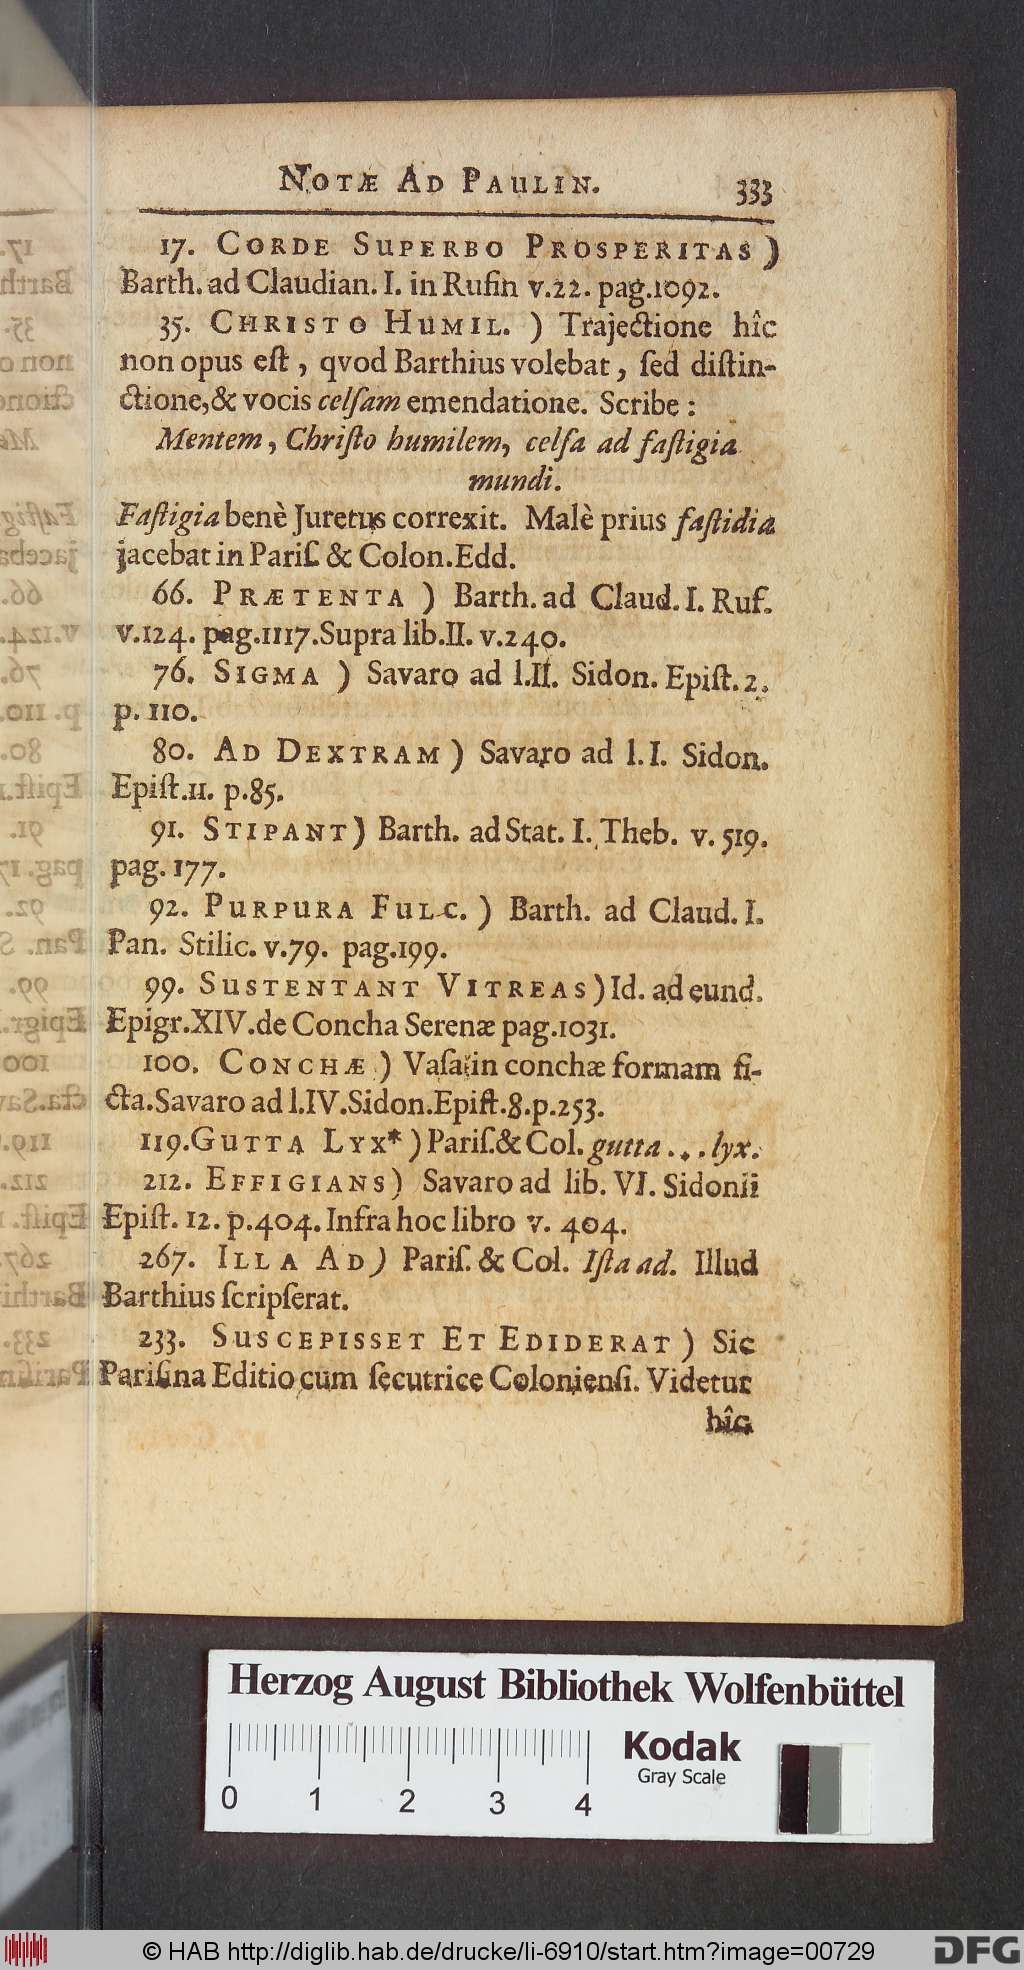 NOTÆ AD PAULIN. 333
17. CORDE SUPERBO PROSPERITAS)
Barth. ad Claudian. I. in Rufin v.22. pag.1092.
35. CHRISTO HUMIL. ) Trajectione hîc
non opus eſt , qvod Barthius volebat , ſed diſtin-
ctione,& vocis celſam emendatione. Scribe :
Mentem , Chriſto humilem, celſa ad faſtigia
mundi.
Faſtigia benè Juretus correxit. Malè prius faſtidia
jacebat in Pariſ. & Colon. Edd.
66. PRÆTENTA ) Barth. ad Claud. I. Ruf.
v.124. pag.1117. Supra lib.II. v.240.
76. SIGMA ) Savaro ad l.II. Sidon. Epiſt. 2.
p. 110.
80. AD DEXTRAM ) Savaro ad l. I. Sidon.
Epiſt.11. p.85.
91. STIPANT) Barth. ad Stat. I. Theb. v. 519.
pag. 177.
92. PURPURA FULC. ) Barth. ad Claud. I.
Pan. Stilic. v.79. pag.199.
99. SUSTENTANT VITREAS) Id. ad eund.
Epigr.XIV.de Concha Serenæ pag.1031.
100. CONCHÆ ) Vaſa in conchæ formam fi-
cta. Savaro ad l.IV. Sidon. Epiſt.8.p.253.
119. GUTTA LYX* ) Pariſ.& Col. gutta . . . lyx.
212. EFFIGIANS) Savaro ad lib. VI. Sidonii
Epiſt. 12. p.404. Infra hoc libro v. 404.
267. ILLA AD) Pariſ. & Col. Iſta ad. Illud
Barthius ſcripſerat.
233. SUSCEPISSET ET EDIDERAT ) Sic
Pariſina Editio cum ſecutrice Colonienſi. Videtur
hîc
Herzog August Bibliothek Wolfenbüttel
0 1 2 3 4
Kodak
Gray Scale
© HAB http://diglib.hab.de/drucke/li-6910/start.htm?image=00729
DFG